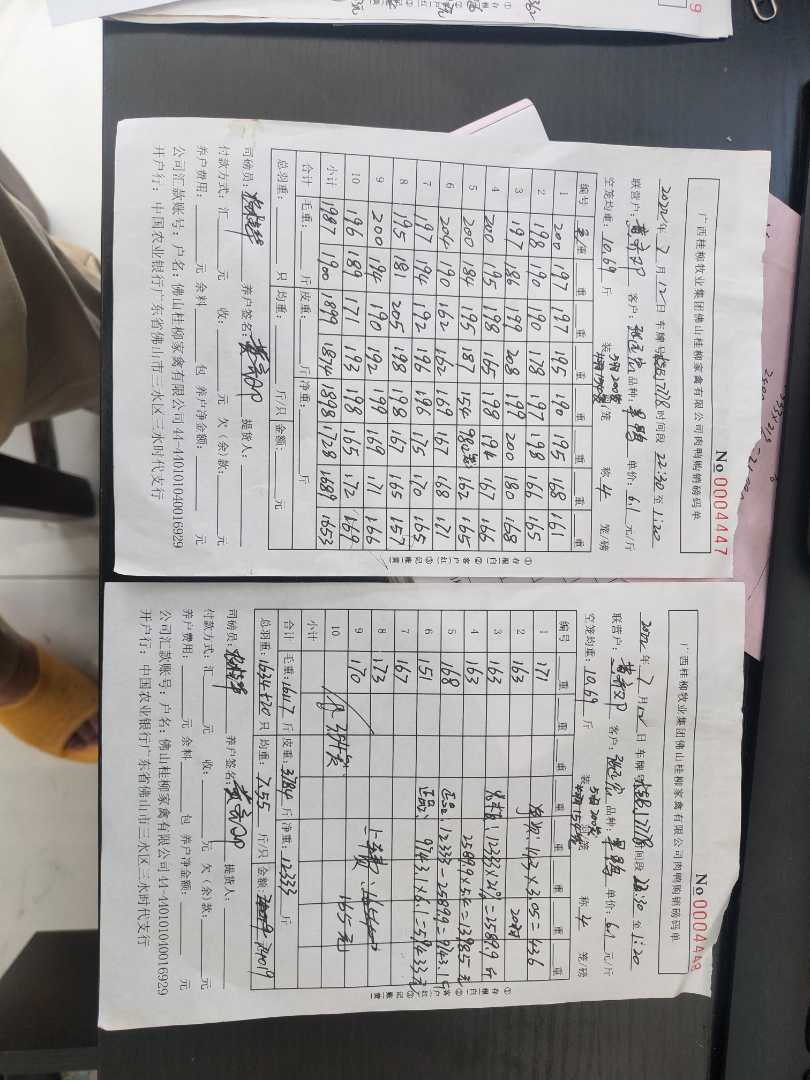 广西桂柳牧业集团佛山桂柳家禽有限公司肉鸭购销磅码单
No 0004447
2022年7月12日 车牌号 时间段 22:30 至 1:20
联营户: 客户: 品种: 单价: 6.1 元/斤
空笼均重: 10.69 斤 装 只/笼 称 4 笼/磅
编号 毛重 重 重 重 重 重 重 重
1 200 197 197 195 190 195 168 161
2 198 190 190 178 197 198 166 165
3 197 186 199 208 199 200 180 168
4 200 195 198 165 198 194 167 166
5 200 184 195 187 154 162 165
6 204 190 162 162 169 167 168 171
7 197 194 192 196 196 175 170 165
8 195 181 205 198 198 167 165 157
9 200 194 190 192 199 169 171 166
10 196 189 171 193 198 165 172 169
小计 1987 1900 1899 1874 1898 1728 1689 1653
合计 毛重: 斤 皮重: 斤 净重: 斤
总羽重: 只 均重: 斤/只 金额: 元
司磅员: 养户签名: 提货人:
付款方式: 汇 元 收: 元 欠(余)款: 元
养户费用: 元 余料 包 养户净金额: 元
公司汇款账号: 户名: 佛山桂柳家禽有限公司 44-440101040016929
开户行: 中国农业银行广东省佛山市三水区三水时代支行
①存根(白) ②客户(红) ③记账(黄)
广西桂柳牧业集团佛山桂柳家禽有限公司肉鸭购销磅码单
No 0004448
2022年7月12日 车牌号 时间段 22:30 至 1:20
联营户: 客户: 品种: 单价: 6.1 元/斤
空笼均重: 10.69 斤 装 只/笼 称 4 笼/磅
编号 重 重 重 重 重 重 重 重
1 171
2 163
3 163
4 163
5 168
6 151
7 167
8 173
9 170
10
小计
142×3.05=436
20只
12333×21%=2589.9斤
2589.9×5.4=13985元
正品: 12333-2589.9=9743.1斤
正品: 9743.1×6.1=59433元
165元
合计 毛重: 16117 斤 皮重: 3784 斤 净重: 12333 斤
总羽重: 1634+20 只 均重: 7.55 斤/只 金额: 74019
司磅员: 养户签名: 提货人:
付款方式: 汇 元 收: 元 欠(余)款: 元
养户费用: 元 余料 包 养户净金额: 元
公司汇款账号: 户名: 佛山桂柳家禽有限公司 44-440101040016929
开户行: 中国农业银行广东省佛山市三水区三水时代支行
①存根(白) ②客户(红) ③记账(黄)